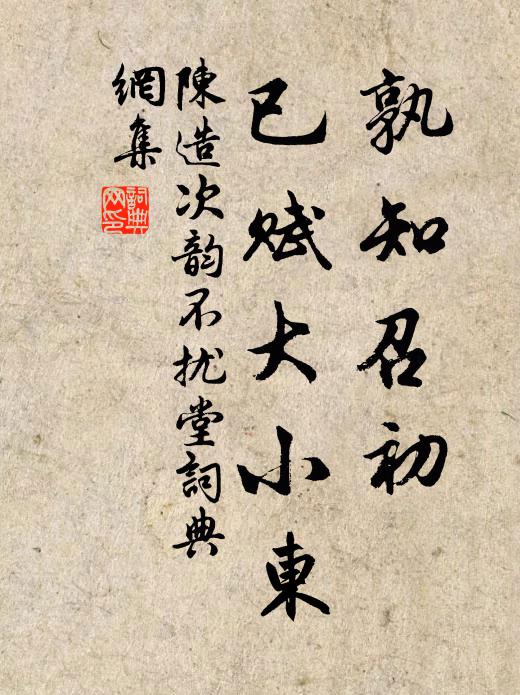 孰知召初
已赋大小東
陳造次韵不扰堂詞典
網集
詞典網印